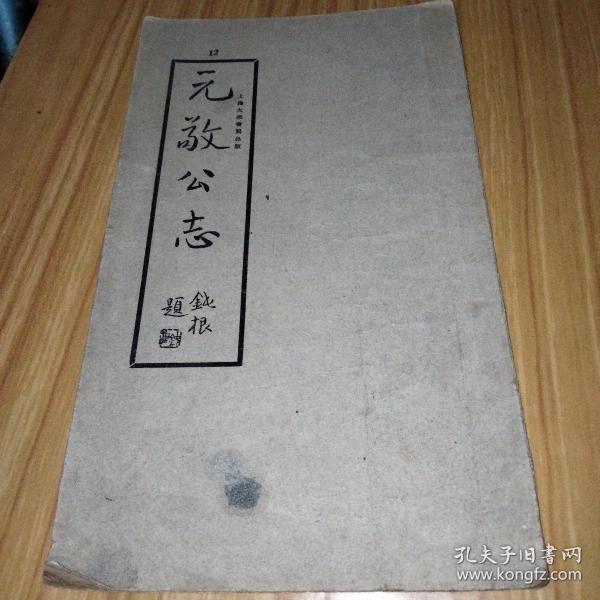 12
元敬公志
上海大眾書局出版
鈍根
題
孔夫子旧書网
www.kongfz.com